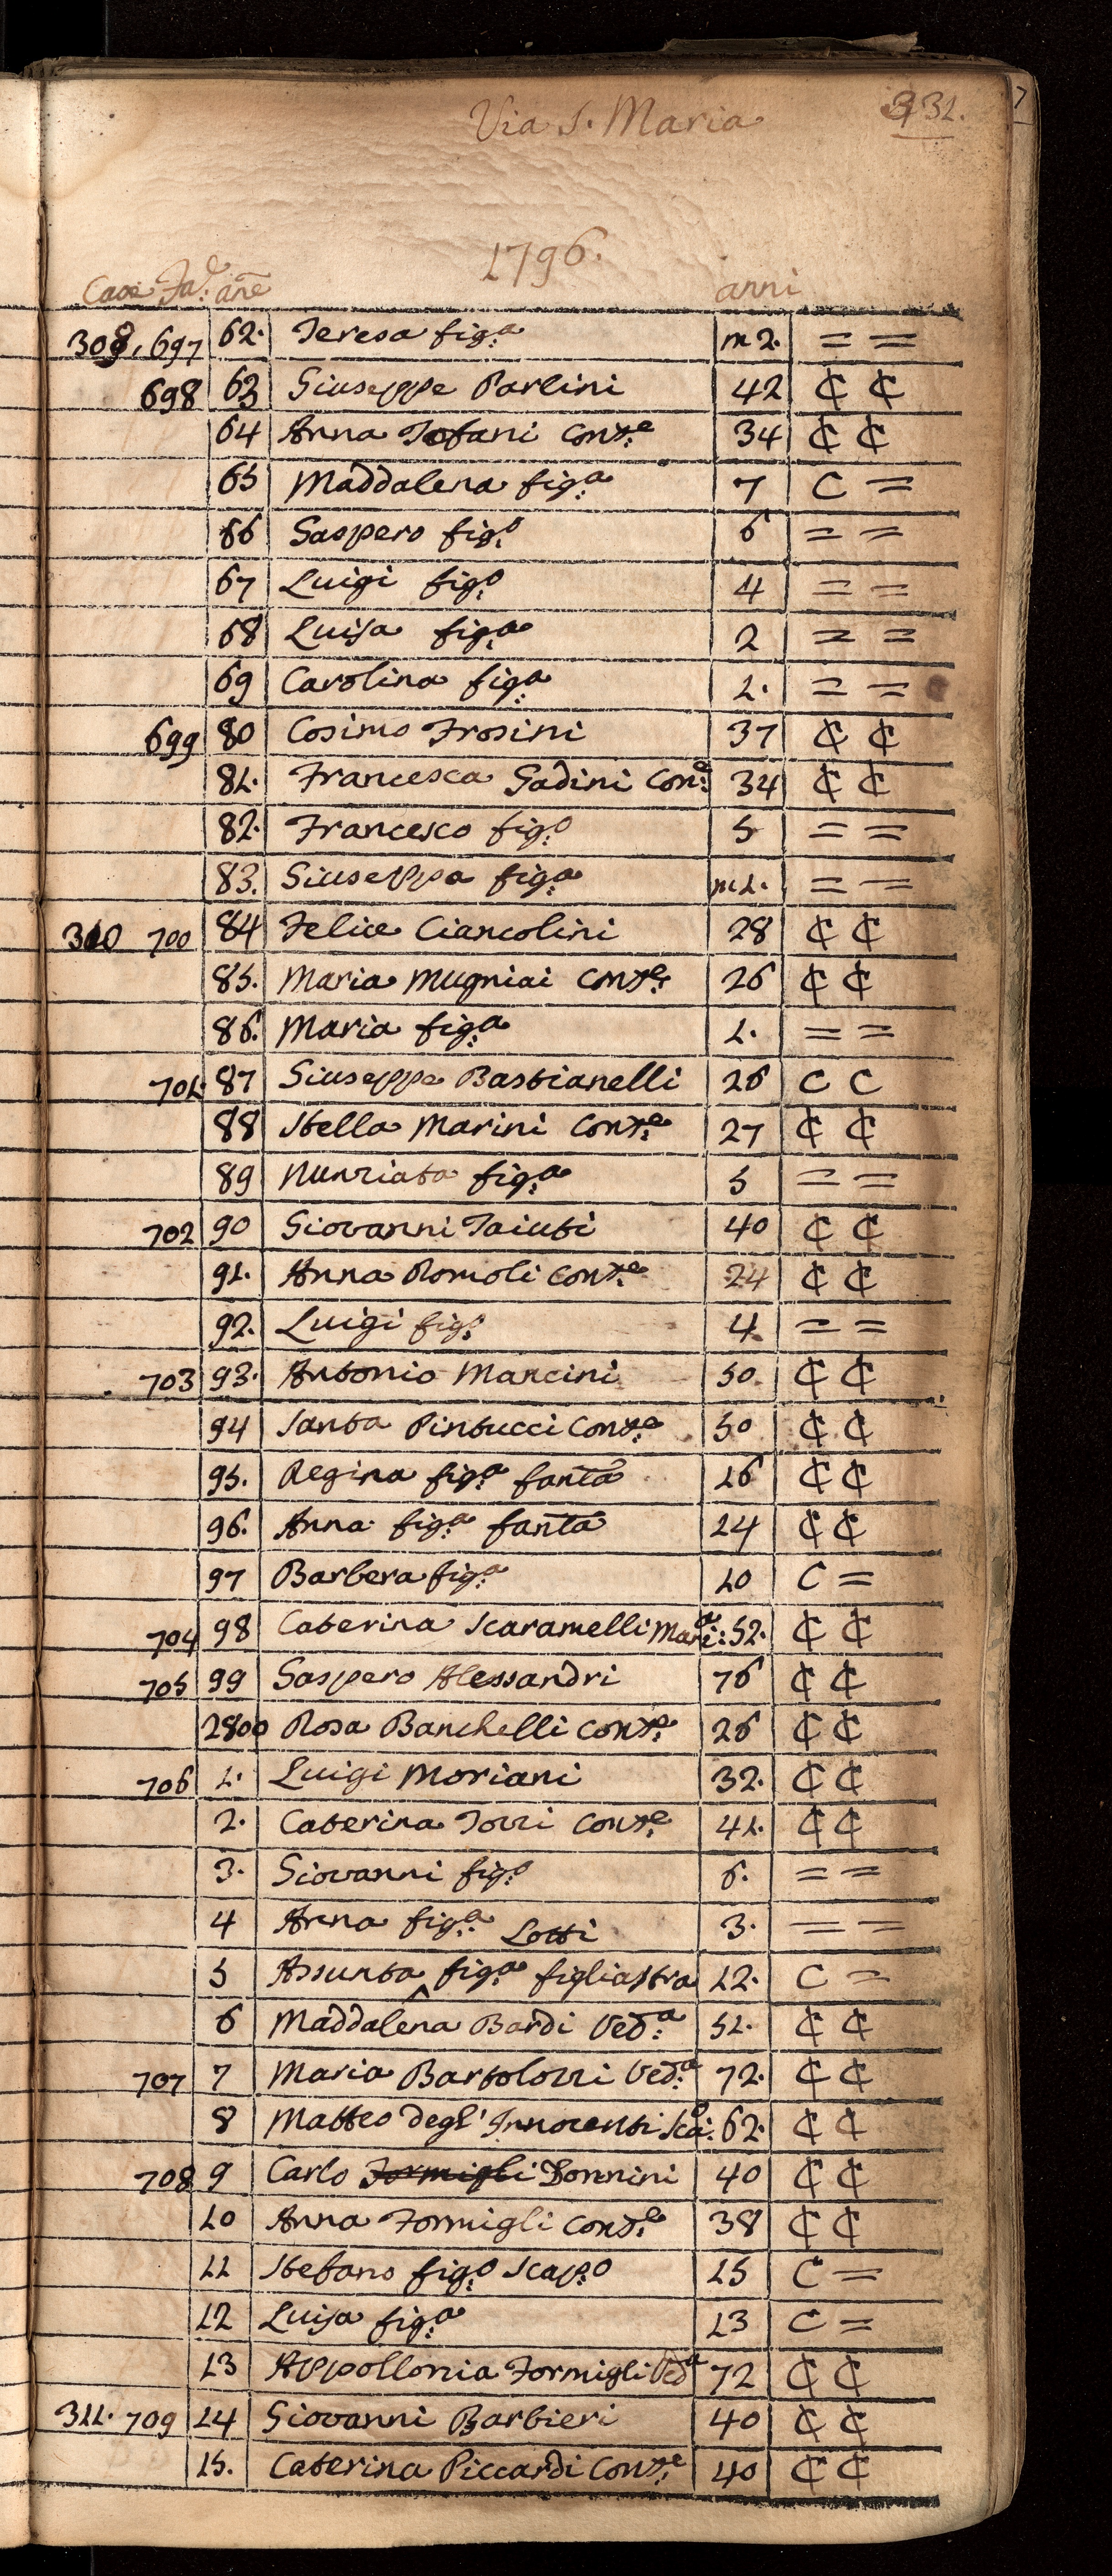 Via S. Maria 331.
7
1796.
Case Fa.e añe anni
308, 697 62. Teresa fig.a m 2. = =
698 63 Giuseppe Parlini 42 ₵ ₵
64 Anna Tofani Cons.e 34 ₵ ₵
65 Maddalena fig.a 7 C =
66 Gaspero fig.o 6 = =
67 Luigi fig.o 4 = =
68 Luisa fig.a 2 = =
69 Carolina fig.a 1. = =
699 80 Cosimo Frosini 37 ₵ ₵
81. Francesca Gadini Con.e 34 ₵ ₵
82. Francesco fig.o 5 = =
83. Giuseppa fig.a m1. = =
310 700 84 Felice Ciancolini 28 ₵ ₵
85. Maria Mugniai Cons.e 26 ₵ ₵
86. Maria fig.a 1. = =
701. 87 Giuseppe Bastianelli 26 C C
88 Stella Marini Cons.e 27 ₵ ₵
89 Nunziata fig.a 5 = =
702 90 Giovanni Taiuti 40 ₵ ₵
91. Anna Romoli Cons.e 24 ₵ ₵
92. Luigi fig.o 4 = =
703 93. Antonio Mancini 50 ₵ ₵
94 Santa Pintucci Cons.e 50 ₵ ₵
95. Regina fig.a fanta 26 ₵ ₵
96. Anna fig.a fanta 24 ₵ ₵
97 Barbera fig.a 10 C =
704 98 Caterina Scaramelli Mari:a 52. ₵ ₵
705 99 Gaspero Alessandri 76 ₵ ₵
2800 Rosa Banchelli Cons.e 26 ₵ ₵
706 1. Luigi Moriani 32. ₵ ₵
2. Caterina Tozzi Cons.e 41. ₵ ₵
3. Giovanni fig.o 6. = =
4 Anna fig.a 3. = =
Lotti
5 Assunta ^ fig.a figliastra 12. C =
6 Maddalena Bardi Ved.a 51. ₵ ₵
707 7 Maria Bartolozzi Ved.a 72. ₵ ₵
8 Matteo degl' Innocenti Sca.o 62. ₵ ₵
708 9 Carlo Formigli Donnini 40 ₵ ₵
10 Anna Formigli Cons.e 38 ₵ ₵
11 Stefano fig.o Scap.o 15 C =
12 Luisa fig.a 13 C =
13 Appollonia Formigli Ved.a 72 ₵ ₵
311. 709 14 Giovanni Barbieri 40 ₵ ₵
15. Caterina Piccardi Cons.e 40 ₵ ₵